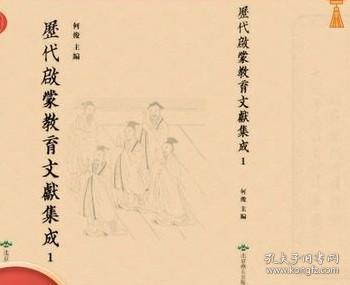 何俊 主編
歷代啟蒙教育文獻集成 1
北京
歷代啟蒙教育文獻集成 1
何俊 主編
孔夫子旧书网